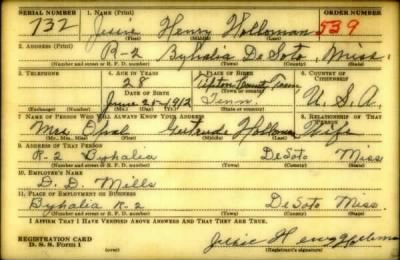 SERIAL NUMBER 1. NAME (Print) ORDER NUMBER
732 Jessie Henry Holloman 539
(First) (Middle) (Last)
2. ADDRESS (Print)
R-2 Byhalia DeSoto Miss.
(Number and street or R. F. D. number) (Town) (County) (State)
3. TELEPHONE 4. AGE IN YEARS 5. PLACE OF BIRTH 6. COUNTRY OF CITIZENSHIP
28 Tipton County Tenn
DATE OF BIRTH (Town or county)
June 25-1912 Tenn U.S.A.
(Exchange) (Number) (Mo.) (Day) (Yr.) (State or country)
7. NAME OF PERSON WHO WILL ALWAYS KNOW YOUR ADDRESS 8. RELATIONSHIP OF THAT PERSON
Mrs. Opal Gertrude Holloman Wife
(Mr., Mrs., Miss) (First) (Middle) (Last)
9. ADDRESS OF THAT PERSON
R-2 Byhalia DeSoto Miss
(Number and street or R. F. D. number) (Town) (County) (State)
10. EMPLOYER'S NAME
D. D. Mills
11. PLACE OF EMPLOYMENT OR BUSINESS
Byhalia R-2 DeSoto Miss.
(Number and street or R. F. D. number) (Town) (County) (State)
I AFFIRM THAT I HAVE VERIFIED ABOVE ANSWERS AND THAT THEY ARE TRUE.
REGISTRATION CARD Jessie Henry Holloman
D. S. S. FORM 1 (over) (Registrant's signature)